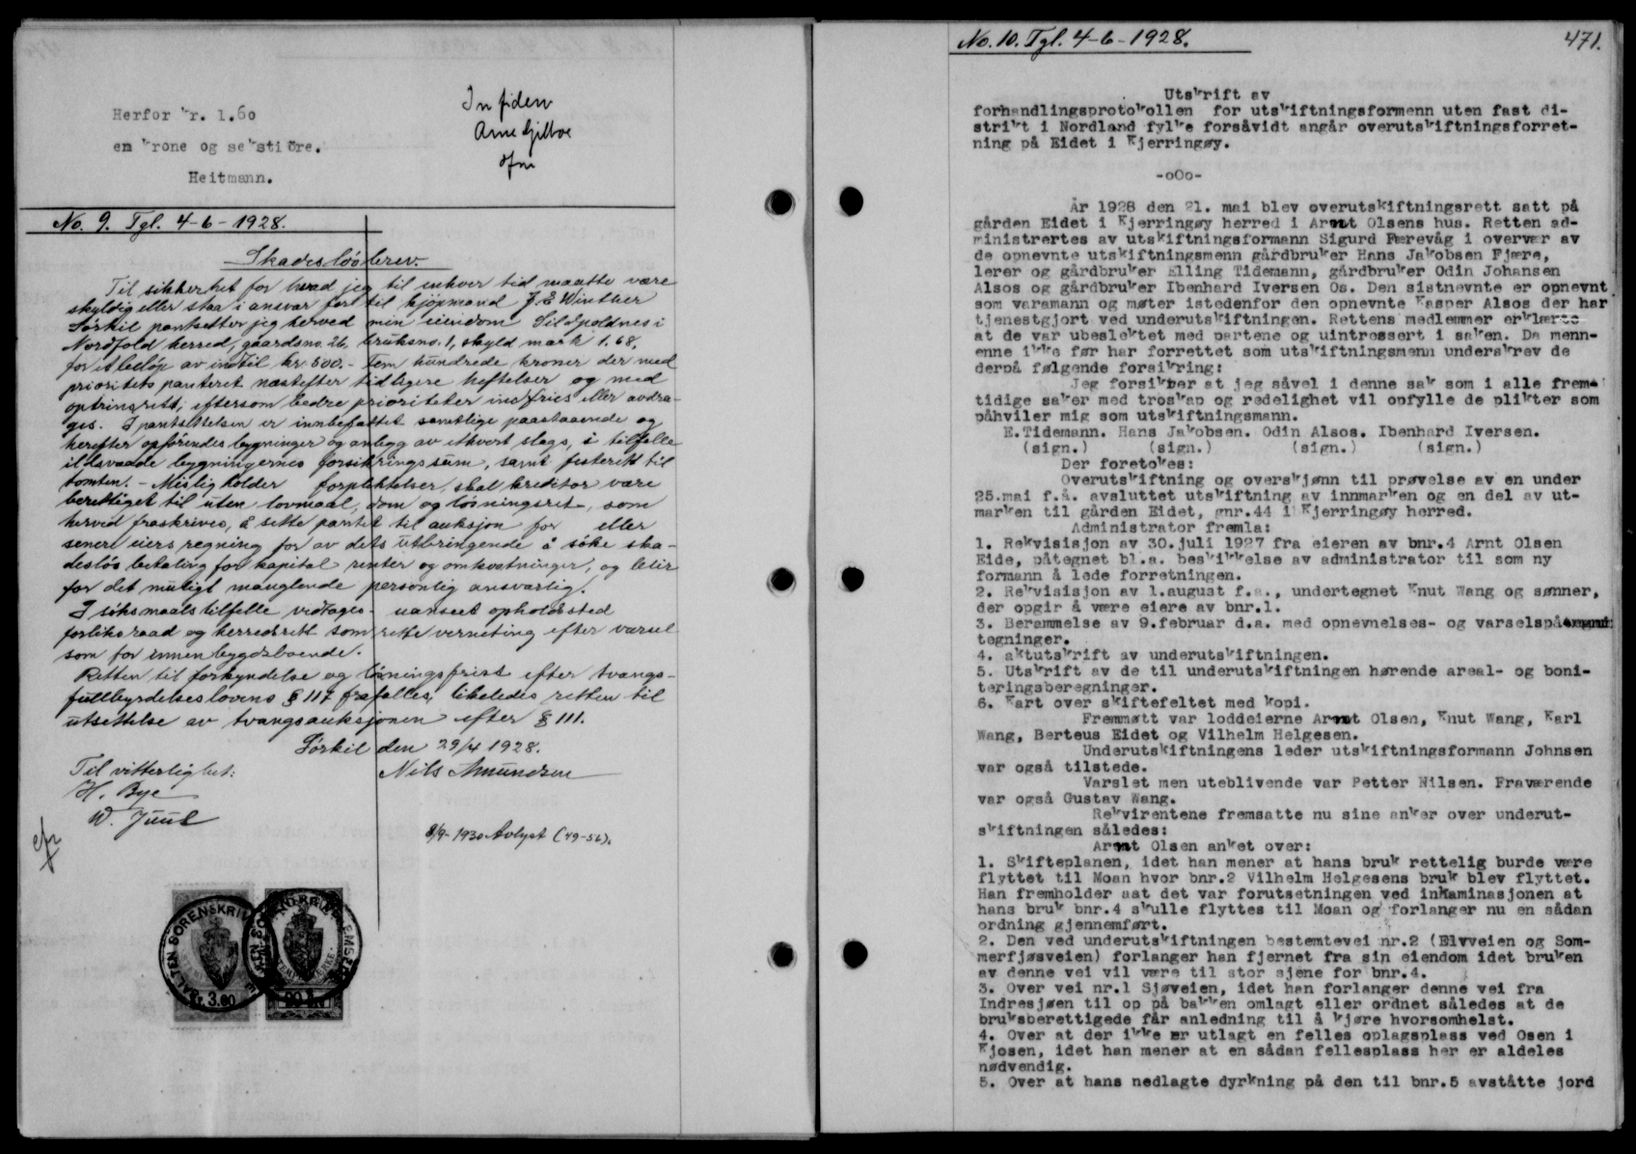 Herfor kr. 1.60
en krone og seksti öre.
Heitmann.
In fidem
Arne Gilboe
ofm
No. 9. Tgl. 4-6-1928.
Skadeslösbrev.
Til sikkerhet for hvad jeg til enhver tid maatte være
skyldig eller staa i ansvar for til kjöpmand J. E Winther
Sörkil pantsetter jeg herved min eiendom Sildpoldnes i
Nordfold herred, gaardsno. 26, bruksno. 1, skyld mark 1.68,
for et belöp av inntil kr. 500.- Fem hundrede kroner der med
prioritets panteret næstefter tidligere heftelser og med
optrinsrett, eftersom bedre prioriteter indfries eller avdra-
ges. I pantsettelsen er innbefattet samtlige paastaaende og
herefter opförendes bygninger og anlegg av ethvert slags, i tilfelle
ildsvaade bygningernes forsikringssum, samt festerett til
tomten. - Misligholder forpliktelser, skal kreditor være
berettiget til uten lovmaal, dom og lösningsret, som
herved fraskrives, å sette pantet til auksjon for eller
senere eiers regning for av dets utbringende å söke ska-
deslös betaling for kapital renter og omkostninger, og blir
for det muligt manglende personlig ansvarlig.
I söksmaals tilfelle vedtages uanseet opholdssted
forliksraad og herredsrett som rette verneting efter varsel
som for innenbygdsboende.
Retten til forkyndelse og lösningsfrist efter tvangs-
fullbyrdelseslovens § 117 frafalles, likeledes retten til
utsettelse av tvangsauksjonen efter § 111.
Sörkil den 29/4 1928.
Til vitterlighet:
Nils Amundsen
H. Bye
W. Juul
8/9-1930 Avlyst (49-56).
SALTEN SORENSKRIV
kr 3.60
No. 10. Tgl. 4-6-1928.
471.
Utskrift av
forhandlingsprotokollen for utskiftningsformenn uten fast di-
strikt i Nordland fylke forsåvidt angår overutskiftningsforret-
ning på Eidet i Kjerringøy.
-oOo-
År 1928 den 21. mai blev overutskiftningsrett satt på
gården Eidet i Kjerringøy herred i Arnt Olsens hus. Retten ad-
ministrertes av utskiftningsformann Sigurd Færevåg i overvær av
de opnevnte utskiftningsmenn gårdbruker Hans Jakobsen Fjære,
lerer og gårdbruker Elling Tidemann, gårdbruker Odin Johansen
Alsos og gårdbruker Ibenhard Iversen Os. Den sistnevnte er opnevnt
som varamann og møter istedenfor den opnevnte Kasper Alsos der har
tjenestgjort ved underutskiftningen. Rettens medlemmer erklærte
at de var ubeslektet med partene og uintressert i saken. De menn-
enne ikke før har forrettet som utskiftningsmenn underskrev de
derpå følgende forsikring:
Jeg forsikrer at jeg såvel i denne sak som i alle frem-
tidige saker med troskap og redelighet vil opfylle de plikter som
påhviler mig som utskiftningsmann.
E.Tidemann. Hans Jakobsen. Odin Alsos. Ibenhard Iversen.
(sign.) (sign.) (sign.) (sign.)
Der foretokes:
Overutskiftning og overskjønn til prøvelse av en under
25.mai f.å. avsluttet utskiftning av innmarken og en del av ut-
marken til gården Eidet, gnr.44 i Kjerringøy herred.
Administrator fremla:
1. Rekvisisjon av 30.juli 1927 fra eieren av bnr.4 Arnt Olsen
Eide, påtegnet bl.a. beskikkelse av administrator til som ny
formann å lede forretningen.
2. Rekvisisjon av 1.august f.a., undertegnet Knut Wang og sønner,
der opgir å være eiere av bnr.1.
3. Berammelse av 9.februar d.a. med opnevnelses- og varselspå
tegninger.
4. aktutskrift av underutskiftningen.
5. Utskrift av de til underutskiftningen hørende areal- og boni-
teringsberegninger.
6. Kart over skiftefeltet med kopi.
Fremmøtt var loddeierne Arnt Olsen, Knut Wang, Karl
Wang, Berteus Eidet og Vilhelm Helgesen.
Underutskiftningens leder utskiftningsformann Johnsen
var også tilstede.
Varslet men uteblivende var Petter Nilsen. Fraværende
var også Gustav Wang.
Rekvirentene fremsatte nu sine anker over underut-
skiftningen således:
Arnt Olsen anket over:
1. Skifteplanen, idet han mener at hans bruk rettelig burde være
flyttet til Moan hvor bnr.2 Vilhelm Helgesens bruk blev flyttet.
Han fremholder aat det var forutsetningen ved inkaminasjonen at
hans bruk bnr.4 skulle flyttes til Moan og forlanger nu en sådan
ordning gjennemført.
2. Den ved underutskiftningen bestemtevei nr.2 (Elvveien og Som-
merfjøsveien) forlanger han fjernet fra sin eiendom idet bruken
av denne vei vil være til stor sjene for bnr.4.
3. Over vei nr.1 Sjøveien, idet han forlanger denne vei fra
Indresjøen til op på bakken omlagt eller ordnet således at de
bruksberettigede får anledning til å kjøre hvorsomhelst.
4. Over at der ikke er utlagt en felles oplagsplass ved Osen i
Kjosen, idet han mener at en sådan fellesplass her er aldeles
nødvendig.
5. Over at hans nedlagte dyrkning på den til bnr.5 avståtte jord